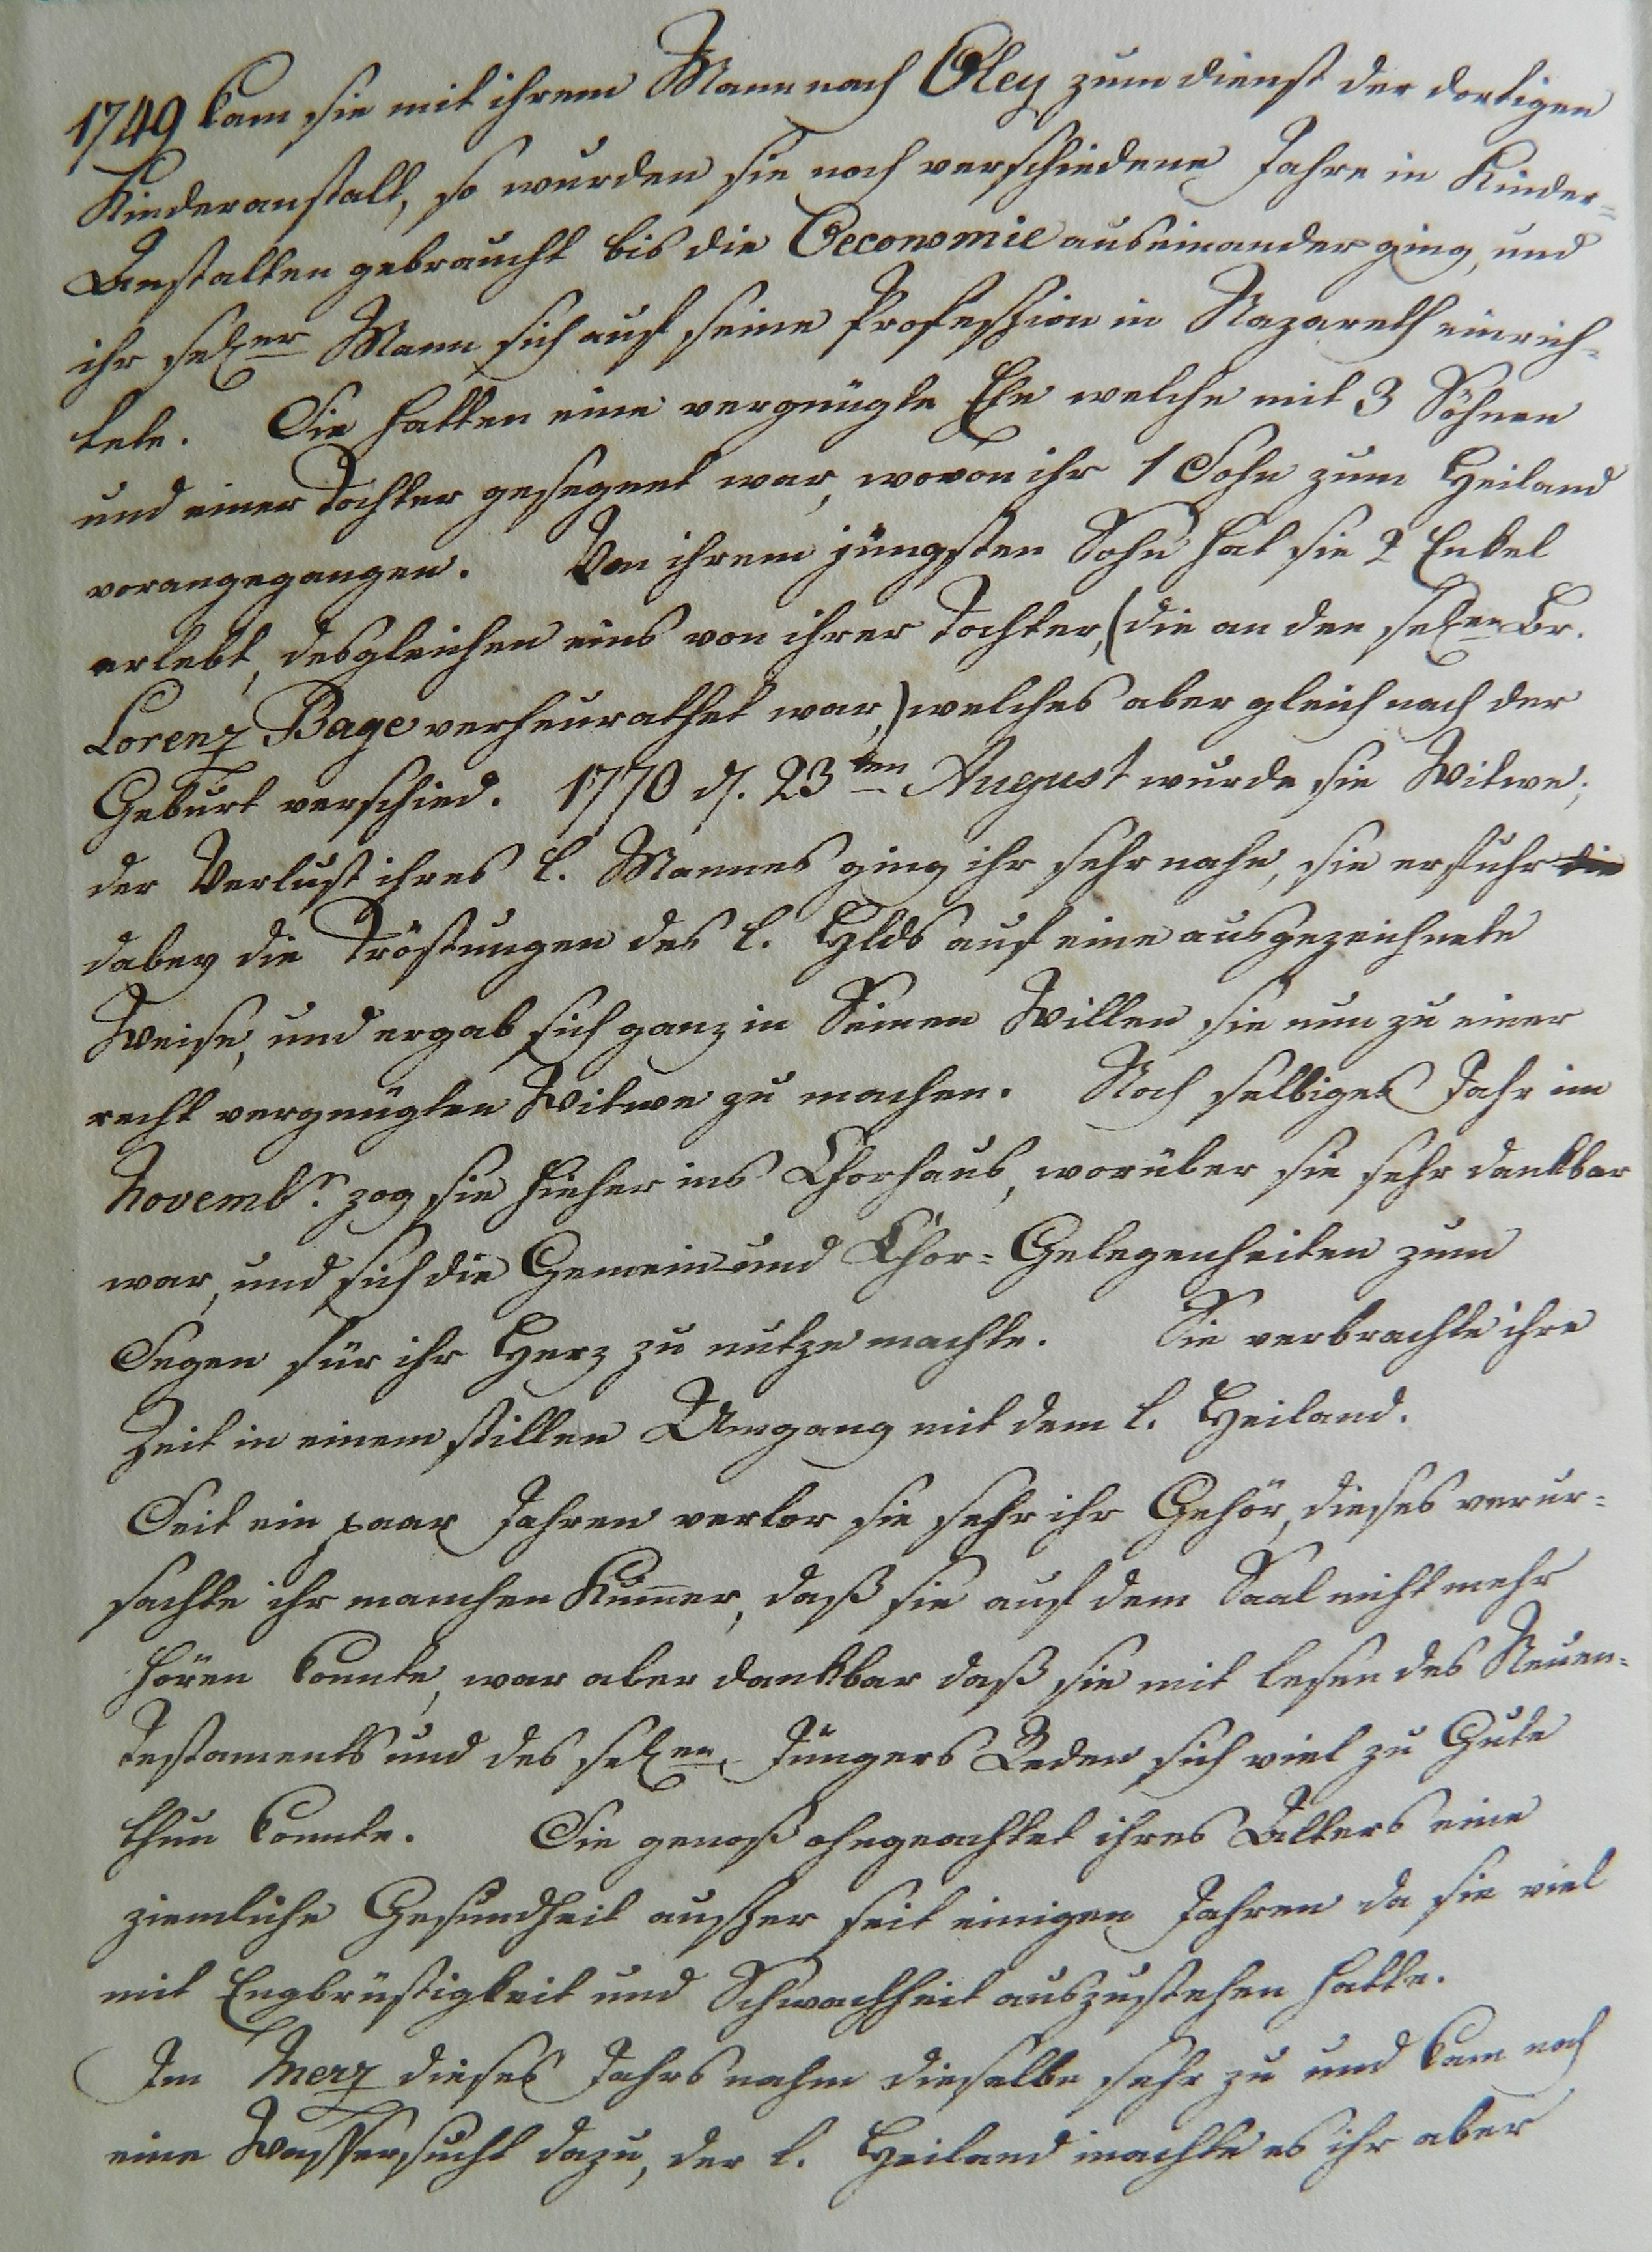 1749 kam sie mit ihrem Mann nach Oley zum dienst der dortigen
Kinderanstalt, so wurden sie noch verschiedene Jahre in Kinder=
Anstalten gebraucht bis die Oeconomie auseinander ging, und
ihr sel. er Mann sich auf seine Profession in Nazareth einrich=
tete. Sie hatten eine vergnügte Ehe welche mit 3 Söhnen
und einer Tochter gesegnet war, wovon ihr 1 Sohn zum Heiland
vorangegangen. Von ihrem jüngsten Sohn hat sie 2 Enkel
erlebt, desgleichen eins von ihrer Tochter, (die an den sel. en Br.
Lorenz Bage verheurathet war,) welches aber gleich nach der
Geburt verschied. 1770 d. 23ten August wurde sie Witwe;
der Verlust ihres l. Mannes ging ihr sehr nahe, sie erfuhr die
dabey die Tröstungen des l. Hlds auf eine ausgezeichnete
Weise, und ergab sich ganz in Seinen Willen sie nun zu einer
recht vergnügten Witwe zu machen. Noch selbiges Jahr im
Novembr. zog sie hieher ins Chorhaus, worüber sie sehr dankbar
war, und sich die Gemein und Chor=Gelegenheiten zum
Segen für ihr Herz zu nutze machte. Sie verbrachte ihre
Zeit in einem stillen Umgang mit dem l. Heiland.
Seit ein paar Jahren verlor sie sehr ihr Gehör, dieses verur=
sachte ihr manchen Kum̄er, daß sie auf dem Saal nicht mehr
hören konnte, war aber dankbar daß sie mit lesen des Neuen=
Testaments und des sel. en Jüngers Reden sich viel zu Gute
thun konnte. Sie genoß ohngeachtet ihres Alters eine
ziemliche Gesundheit ausser seit einigen Jahren da sie viel
mit Engbrüstigkeit und Schwachheit auszustehen hatte.
Im Merz dieses Jahrs nahm dieselbe sehr zu und kam noch
eine Wassersucht dazu, der l. Heiland machte es ihr aber